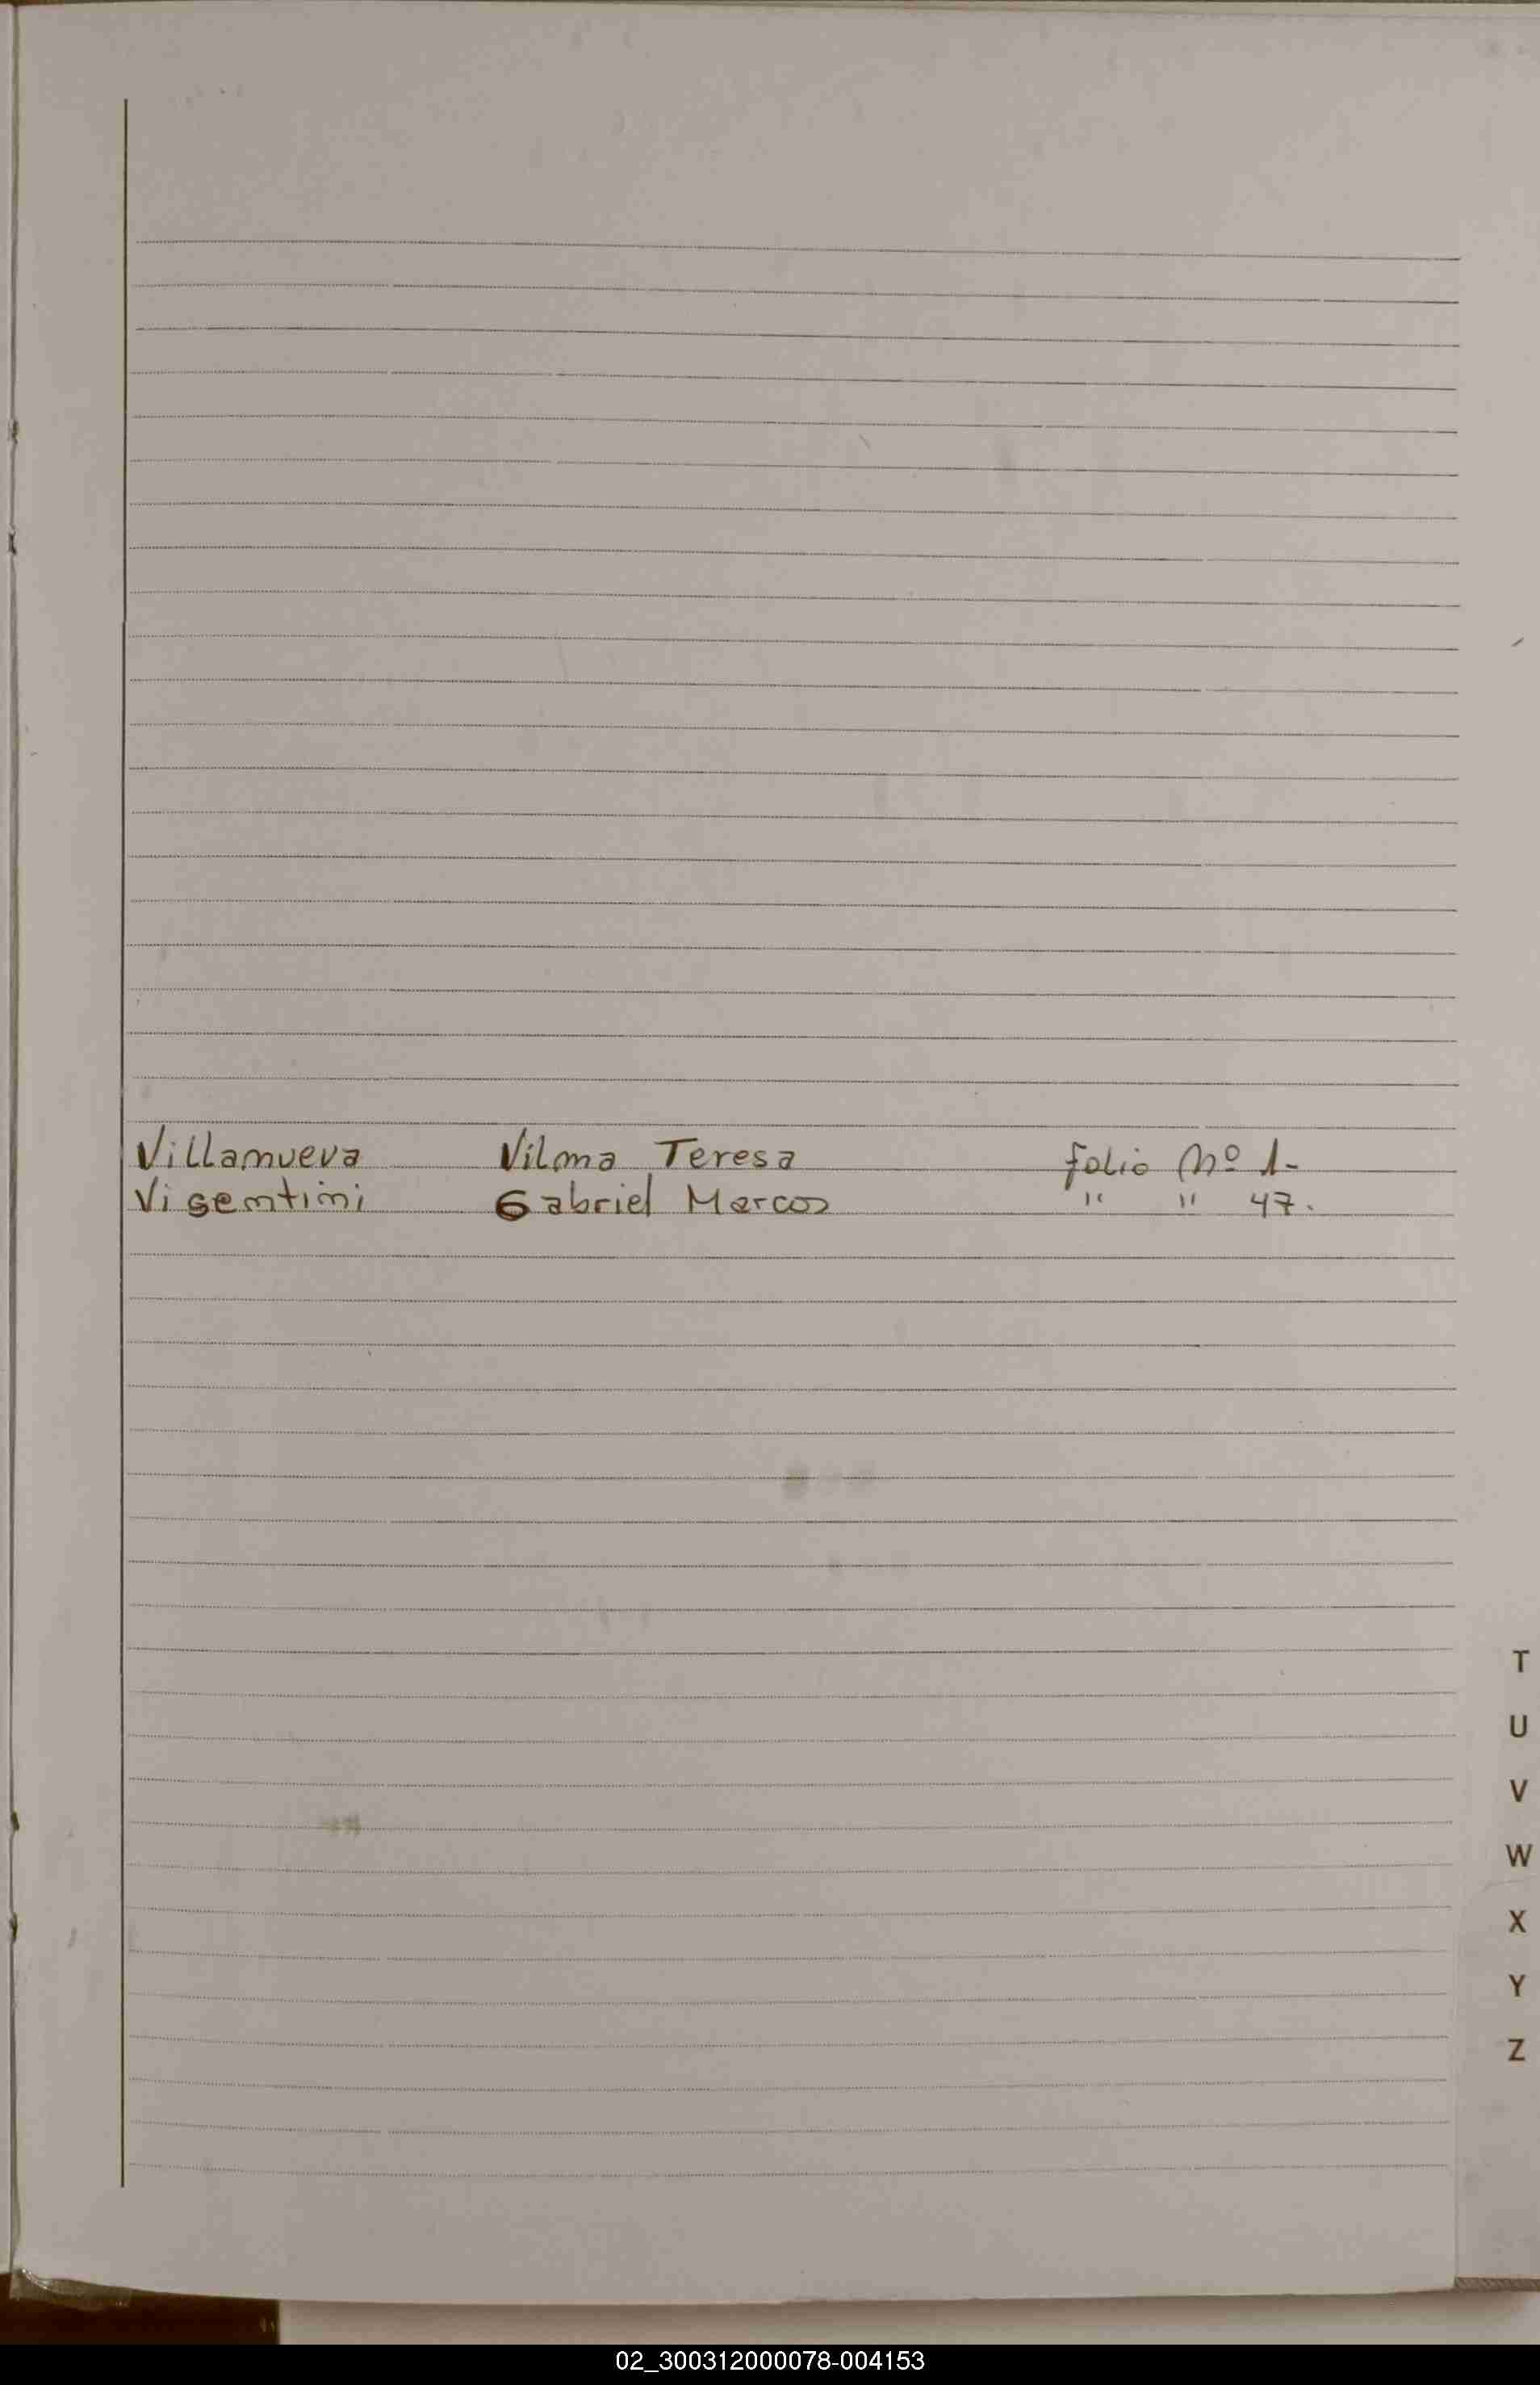 Villanueva Vilma Teresa folio Nº 1-
Visentini Gabriel Marcos " " 47.
T
U
V
W
X
Y
Z
02_300312000078-004153